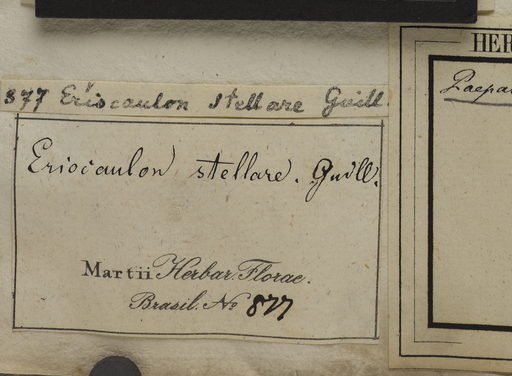 HER
877 Eriocaulon stellare Guill.
Eriocaulon stellare. Guill.
Martii Herbar. Florae.
Brasil. No 877